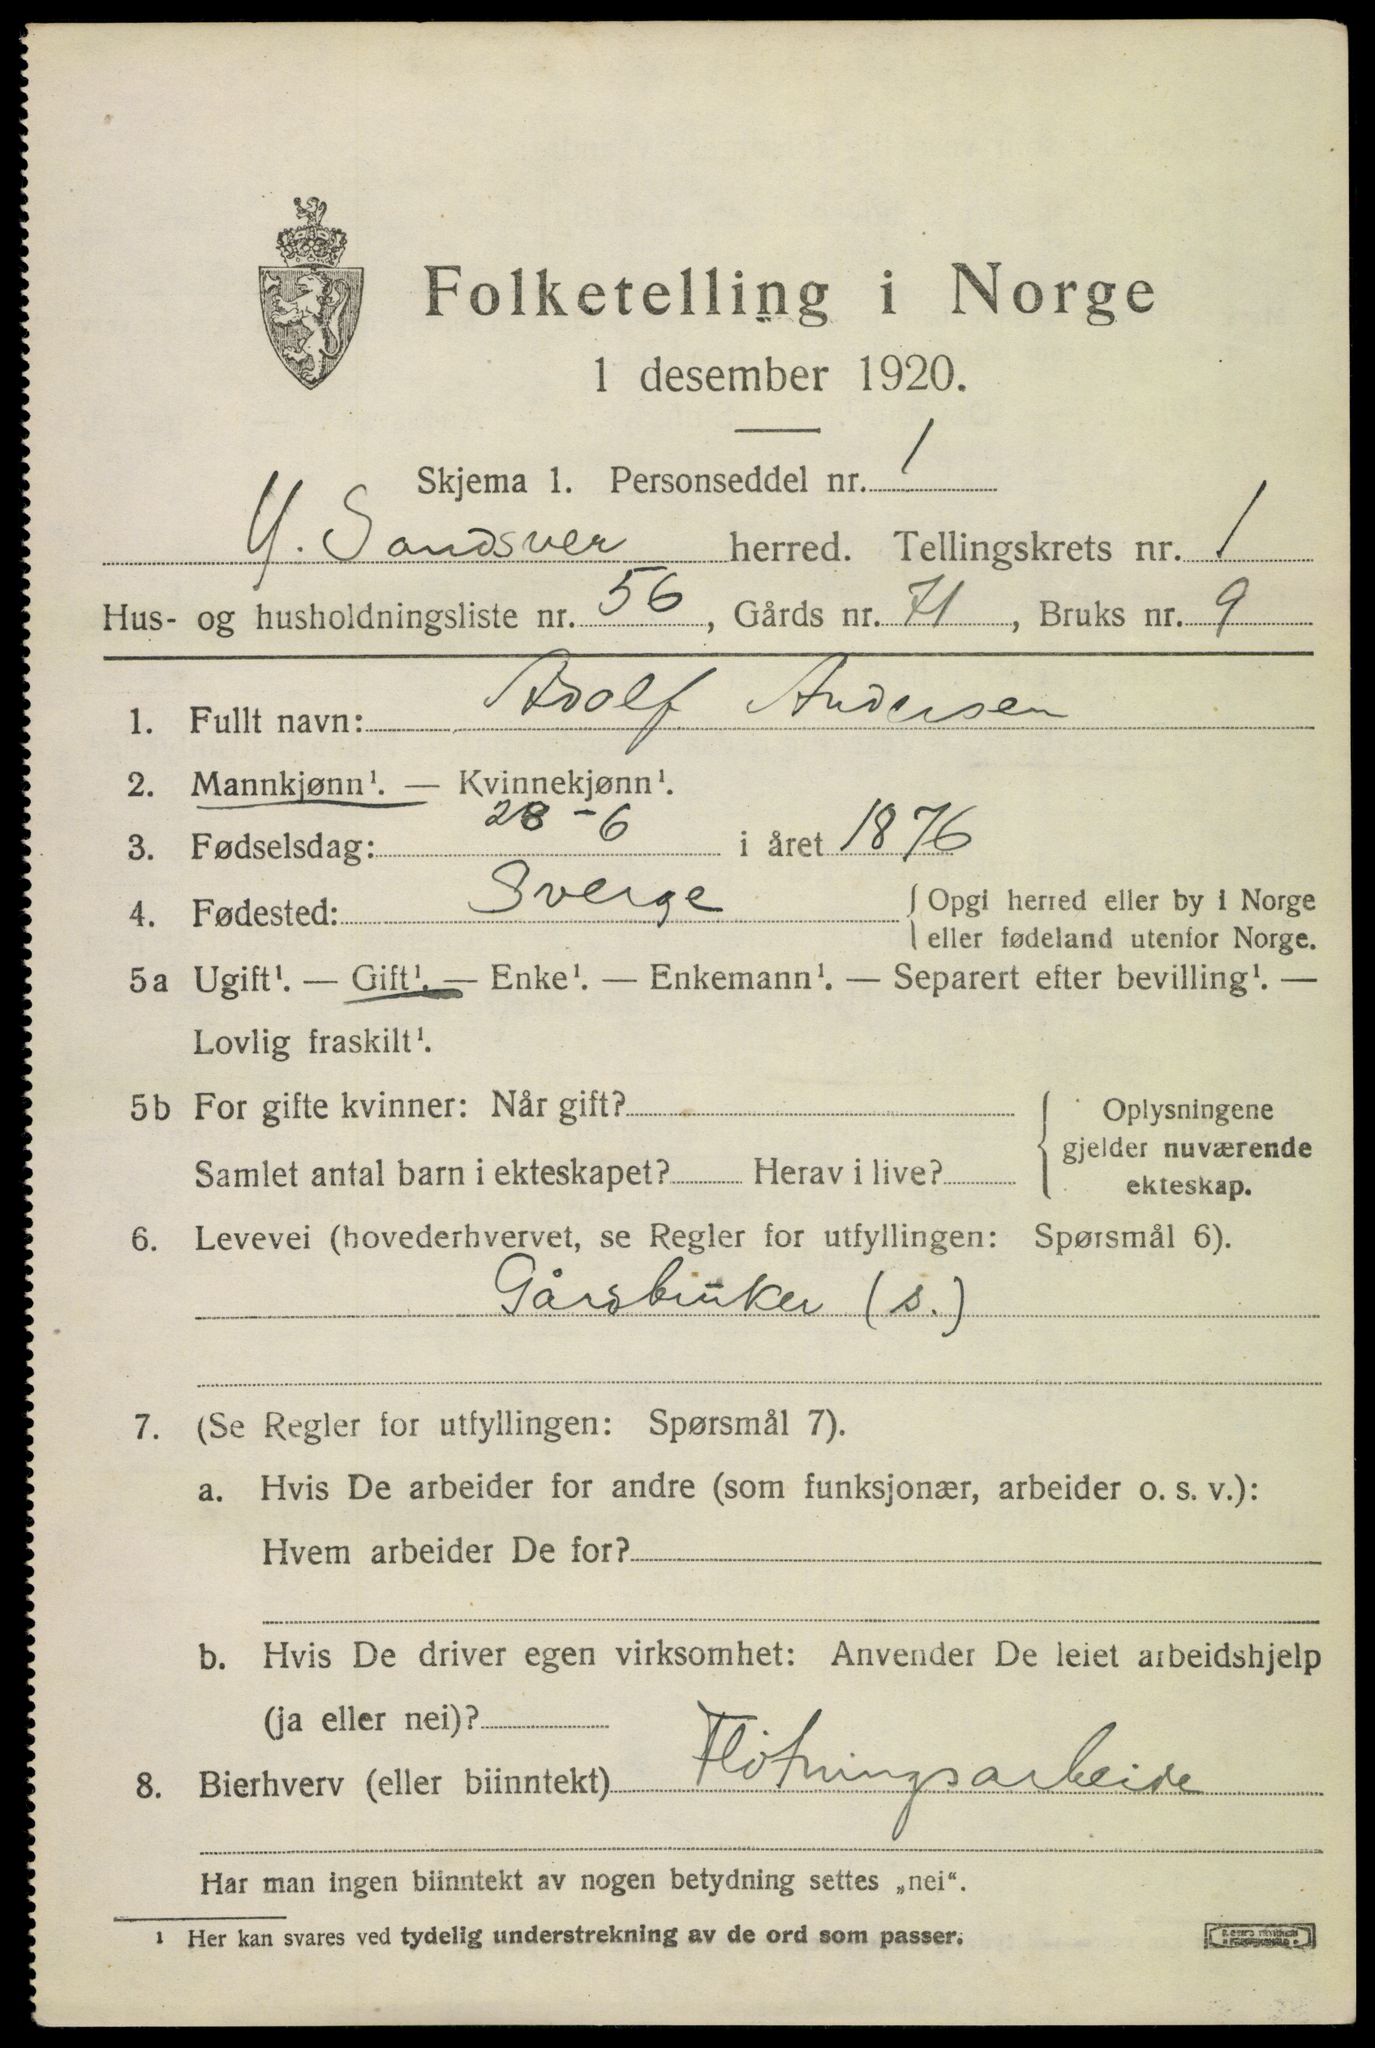 Folketelling i Norge
1 desember 1920.
Skjema 1. Personseddel nr. 1
Y. Sandsver herred. Tellingskrets nr. 1
Hus- og husholdningsliste nr. 56, Gårds nr. 71, Bruks nr. 9
1. Fullt navn: Adolf Andersen
2. Mannkjønn¹. — Kvinnekjønn¹.
3. Fødselsdag: 28-6 i året 1876
4. Fødested: Sverge { Opgi herred eller by i Norge
eller fødeland utenfor Norge.
5a Ugift¹. — Gift¹. — Enke¹. — Enkemann¹. — Separert efter bevilling¹. —
Lovlig fraskilt¹.
5b For gifte kvinner: Når gift?
Samlet antal barn i ekteskapet? Herav i live?
{ Oplysningene
gjelder nuværende
ekteskap.
6. Levevei (hovederhvervet, se Regler for utfyllingen: Spørsmål 6).
Gårdbruker (s.)
7. (Se Regler for utfyllingen: Spørsmål 7).
a. Hvis De arbeider for andre (som funksjonær, arbeider o. s. v.):
Hvem arbeider De for?
b. Hvis De driver egen virksomhet: Anvender De leiet arbeidshjelp
(ja eller nei)?
8. Bierhverv (eller biinntekt) Fløtningsarbeide
Har man ingen biinntekt av nogen betydning settes „nei“.
¹ Her kan svares ved tydelig understrekning av de ord som passer.